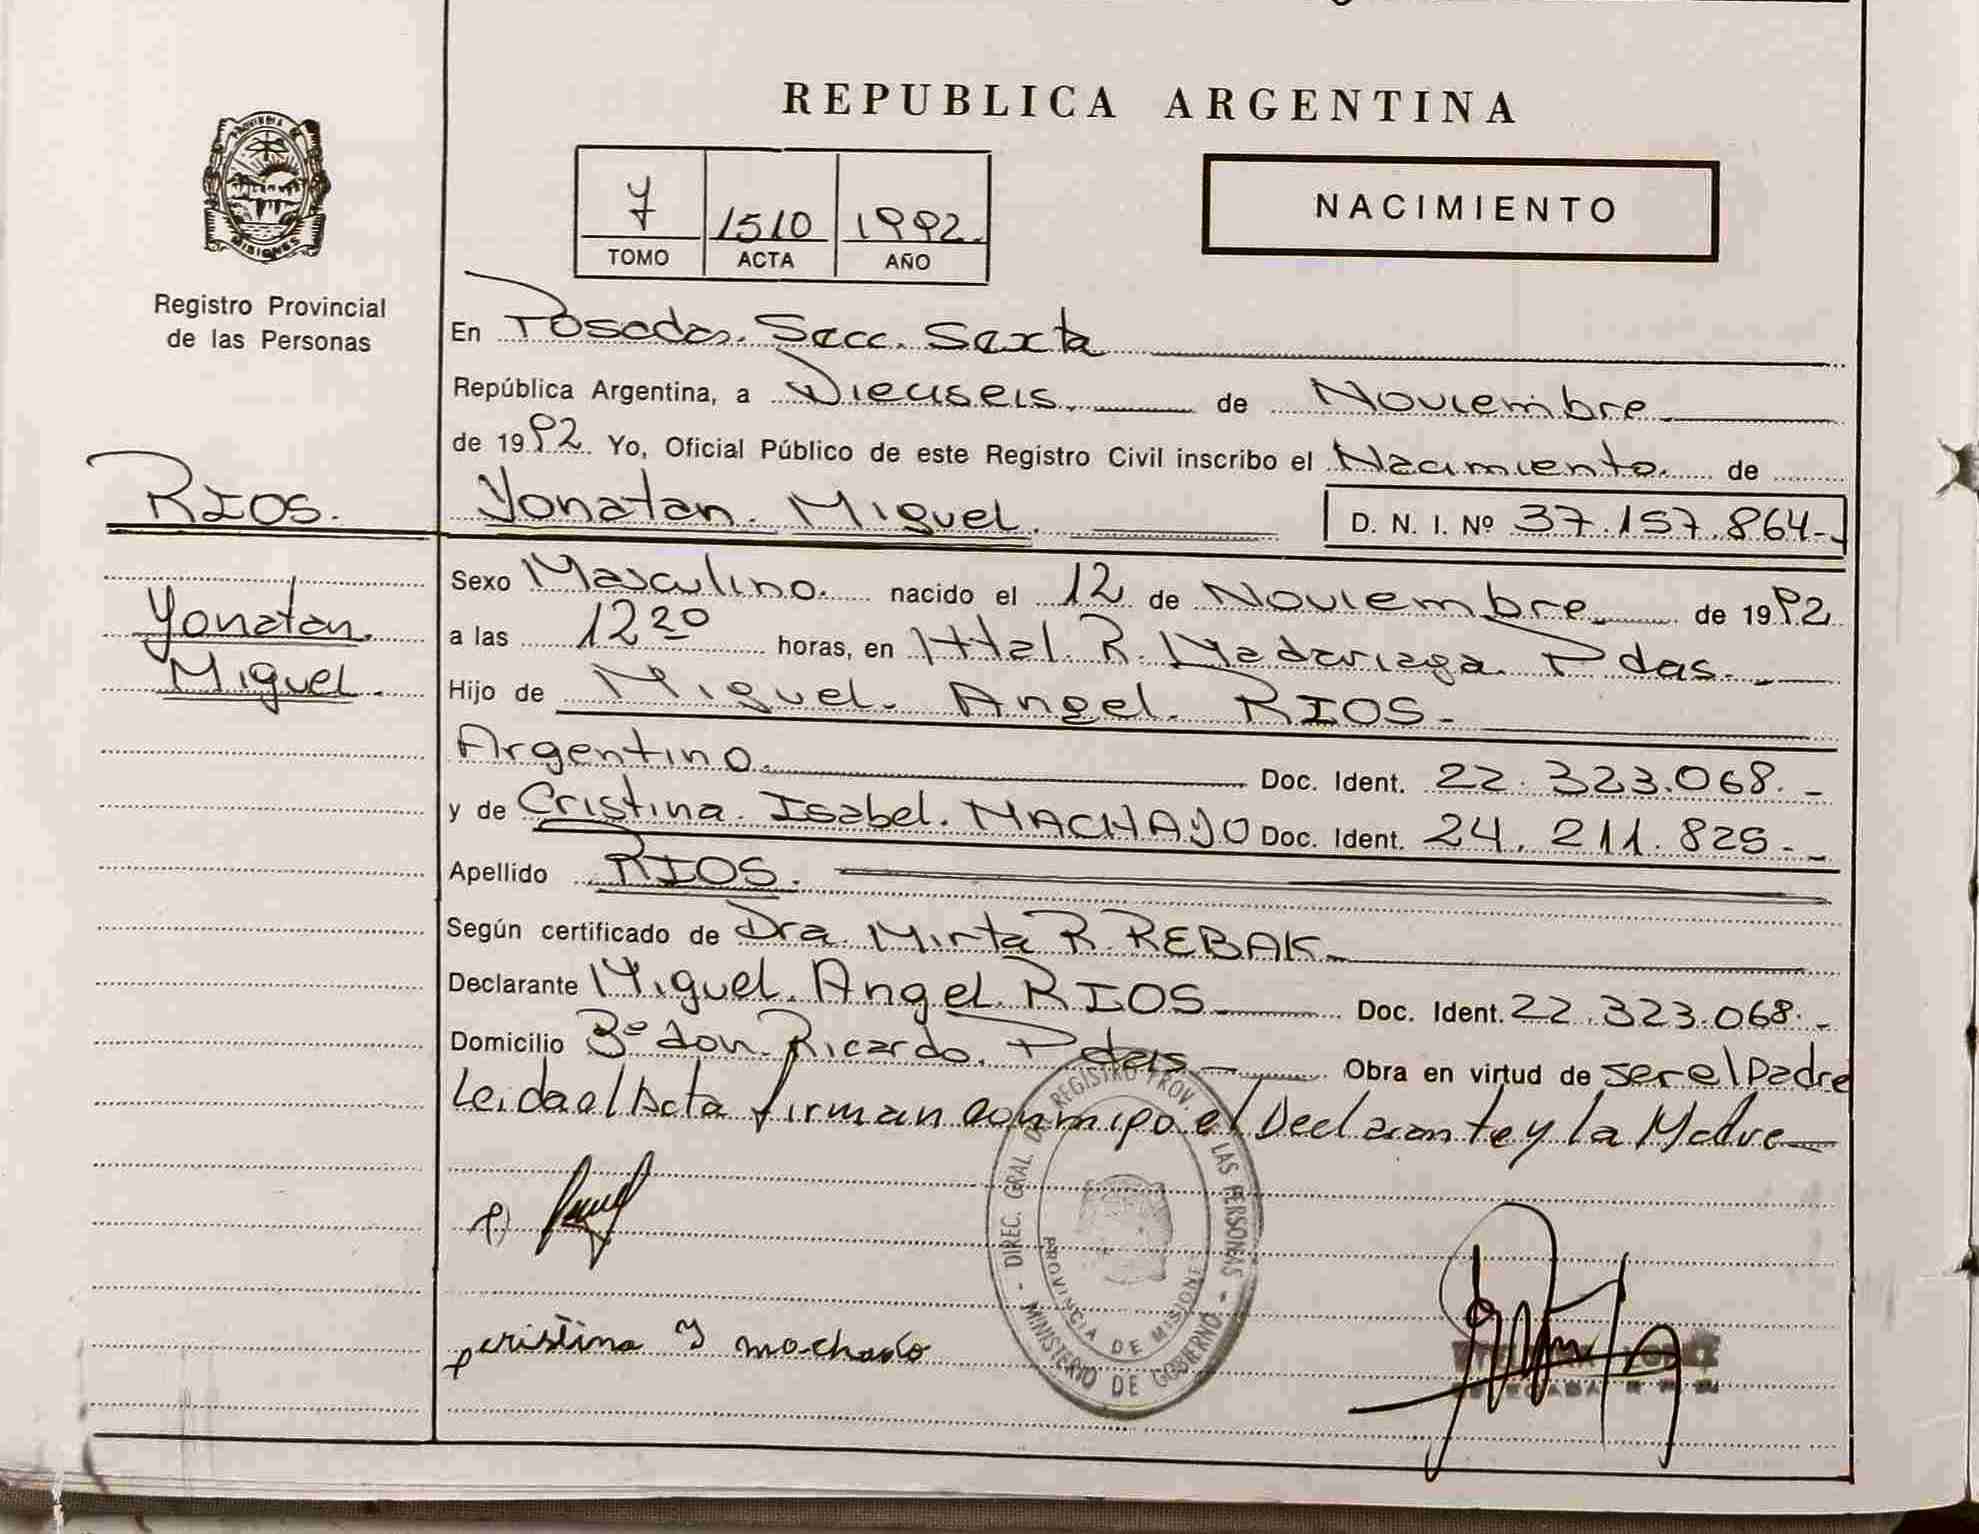 REPUBLICA ARGENTINA
PROVINCIA DE
MISIONES
Registro Provincial
de las Personas
7 1510 1992.
TOMO ACTA AÑO
NACIMIENTO
En Posadas. Secc. Sexta
República Argentina, a Dieciseis. de Noviembre
de 1992. Yo, Oficial Público de este Registro Civil inscribo el Nacimiento. de
RIOS. Yonatan. Miguel. D. N. I. Nº 37.157.864-
Sexo Masculino. nacido el 12 de Noviembre de 1992
Yonatan. a las 12 20 horas, en Htal. R. Madariaga. Pdas.
Miguel. Hijo de Miguel. Angel. RIOS.
Argentino. Doc. Ident. 22.323.068.-
y de Cristina. Isabel. MACHADO Doc. Ident. 24.211.825-
Apellido RIOS.
Según certificado de Dra. Mirta R. REBAK
Declarante Miguel. Angel. RIOS Doc. Ident. 22.323.068.-
Domicilio Bº don. Ricardo. Pdas Obra en virtud de ser el Padre
Leida el Acta firman conmigo el Declarante y la Madre
DIREC. GRAL. DE REGISTRO PROV. LAS PERSONAS - MINISTERIO DE GOBIERNO -
PROVINCIA DE MISIONES
cristina Y machado